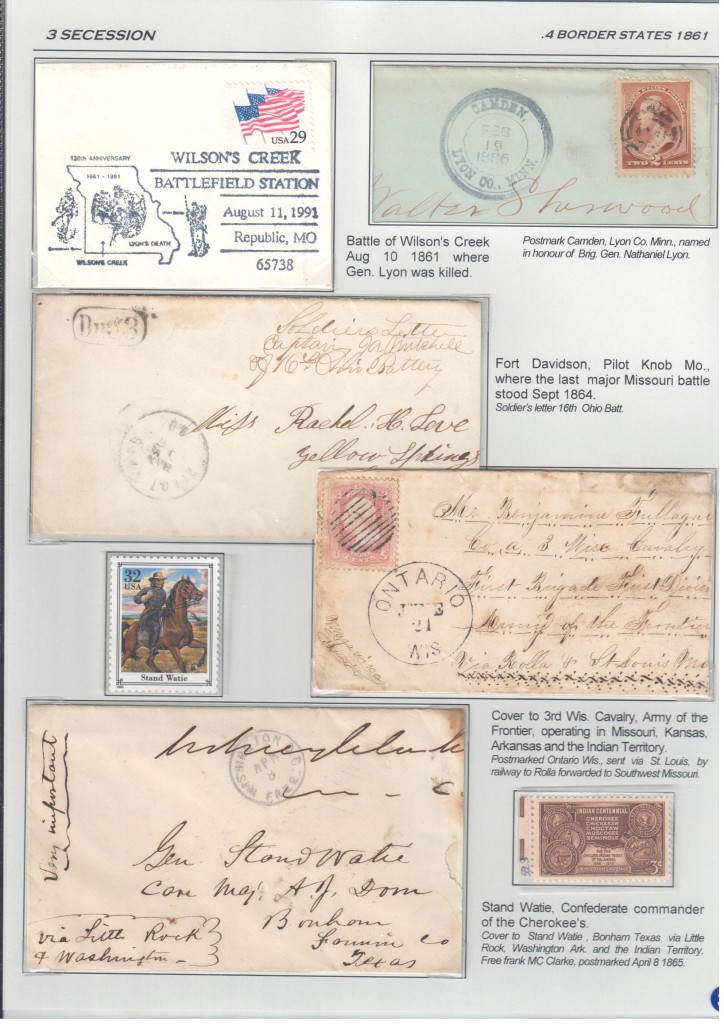 3 SECESSION
.4 BORDER STATES 1861
USA 29
130th ANNIVERSARY
1861 - 1991
LYON'S DEATH
WILSON'S CREEK
WILSON'S CREEK
BATTLEFIELD STATION
August 11, 1991
Republic, MO
65738
CAMDEN,
FEB
16
1886
LYON CO., MINN.
TWO 2 CENTS
Walter Sherwood
Battle of Wilson's Creek
Aug 10 1861 where
Gen. Lyon was killed.
Postmark Camden, Lyon Co. Minn., named
in honour of Brig. Gen. Nathaniel Lyon.
Due 3
Soldiers Letter
Captain
Miss Rachel. H. Love
Yellow Springs
Fort Davidson, Pilot Knob Mo.,
where the last major Missouri battle
stood Sept 1864.
Soldier's letter 16th Ohio Batt.
Mr Benjamine Fullagar
Co. a 3 Wisc Cavalry
First Brigade First
Army of the Frontier
Via Rolla & St Louis Mo
ONTARIO
JUNE
21
WIS
32
USA
Stand Watie
Cover to 3rd Wis. Cavalry, Army of the
Frontier, operating in Missouri, Kansas,
Arkansas and the Indian Territory.
Postmarked Ontario Wis., sent via St. Louis, by
railway to Rolla forwarded to Southwest Missouri.
Very important
APR
8
FREE
Gen. Stand Watie
Care Maj. A J. Dorn
Bonham
Fannin Co
Texas
via Little Rock
& Washington
INDIAN CENTENNIAL
CHEROKEE
CHICKASAW
CHOCTAW
MUSCOGEE
SEMINOLE
3¢
Stand Watie, Confederate commander
of the Cherokee's.
Cover to Stand Watie , Bonham Texas via Little
Rock, Washington Ark. and the Indian Territory.
Free frank MC Clarke, postmarked April 8 1865.